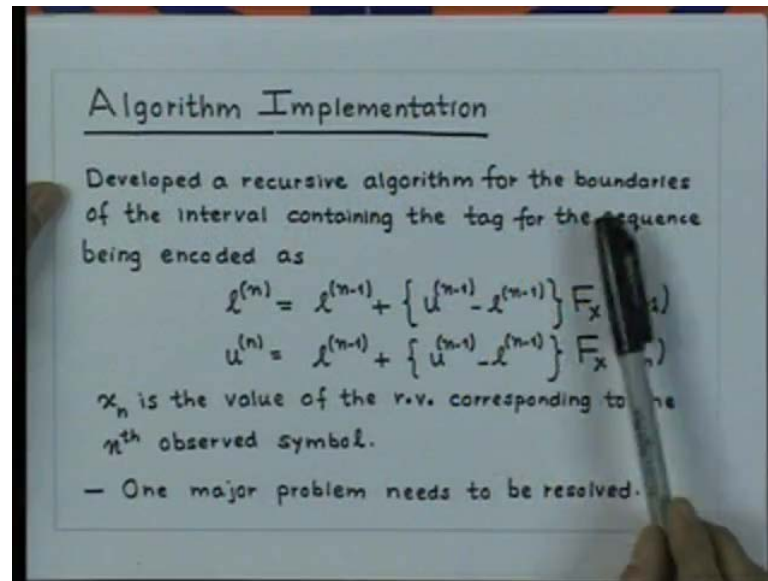 Algorithm Implementation
Developed a recursive algorithm for the boundaries
of the interval containing the tag for the sequence
being encoded as
l^(n) = l^(n-1) + { u^(n-1) - l^(n-1) } F_x
u^(n) = l^(n-1) + { u^(n-1) - l^(n-1) } F_x
x_n is the value of the r.v. corresponding to the
n^th observed symbol.
- One major problem needs to be resolved.